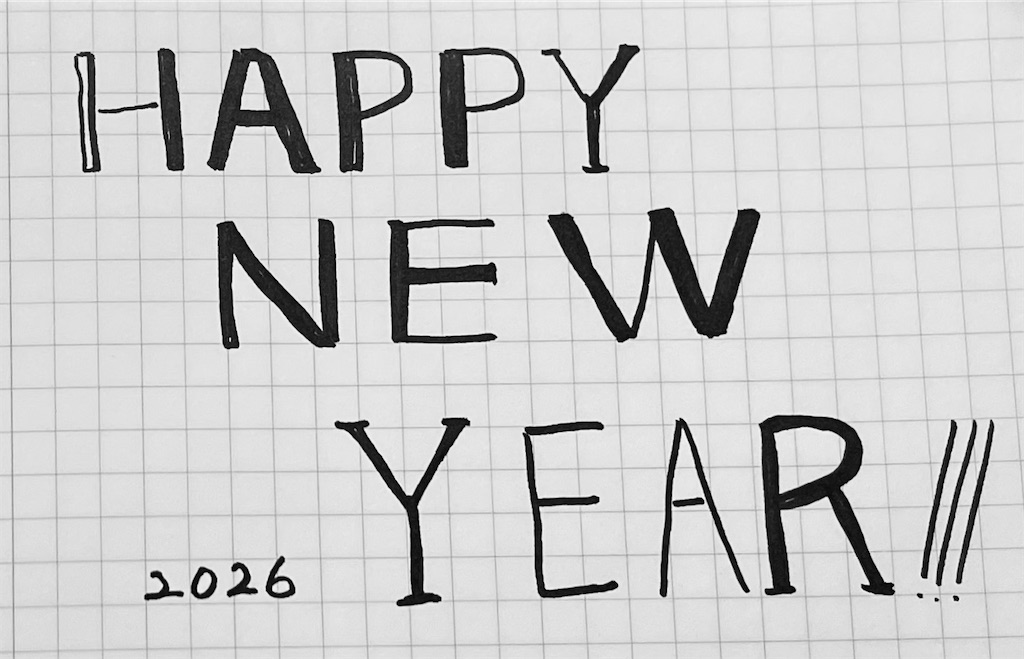 HAPPY
NEW
YEAR!!!
2026